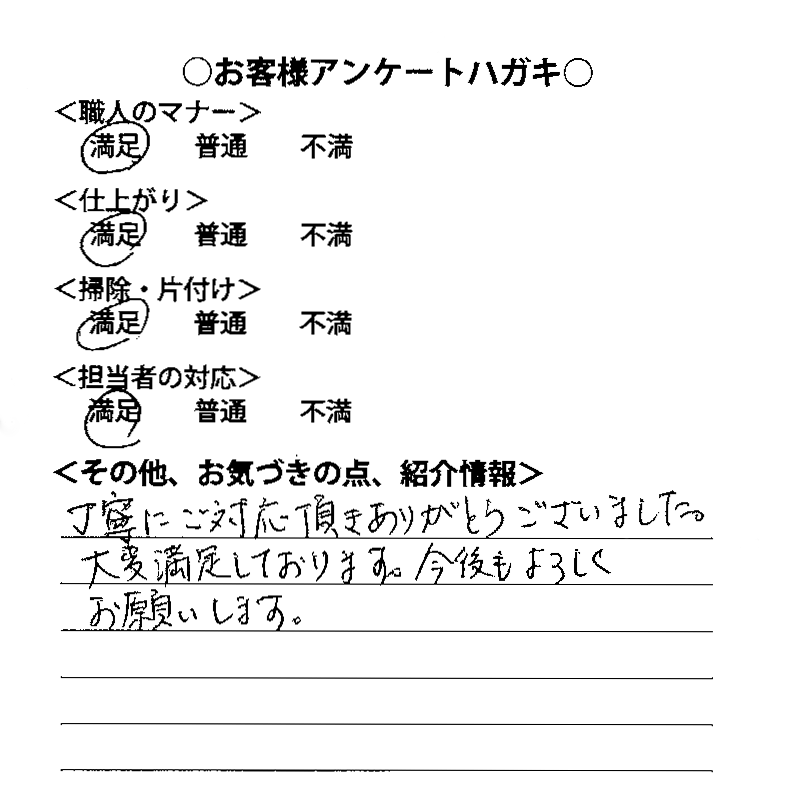 ○お客様アンケートハガキ○
＜職人のマナー＞
満足 普通 不満
＜仕上がり＞
満足 普通 不満
＜掃除・片付け＞
満足 普通 不満
＜担当者の対応＞
満足 普通 不満
＜その他、お気づきの点、紹介情報＞
丁寧にご対応頂きありがとうございました。
大変満足しております。今後もよろしく
お願いします。